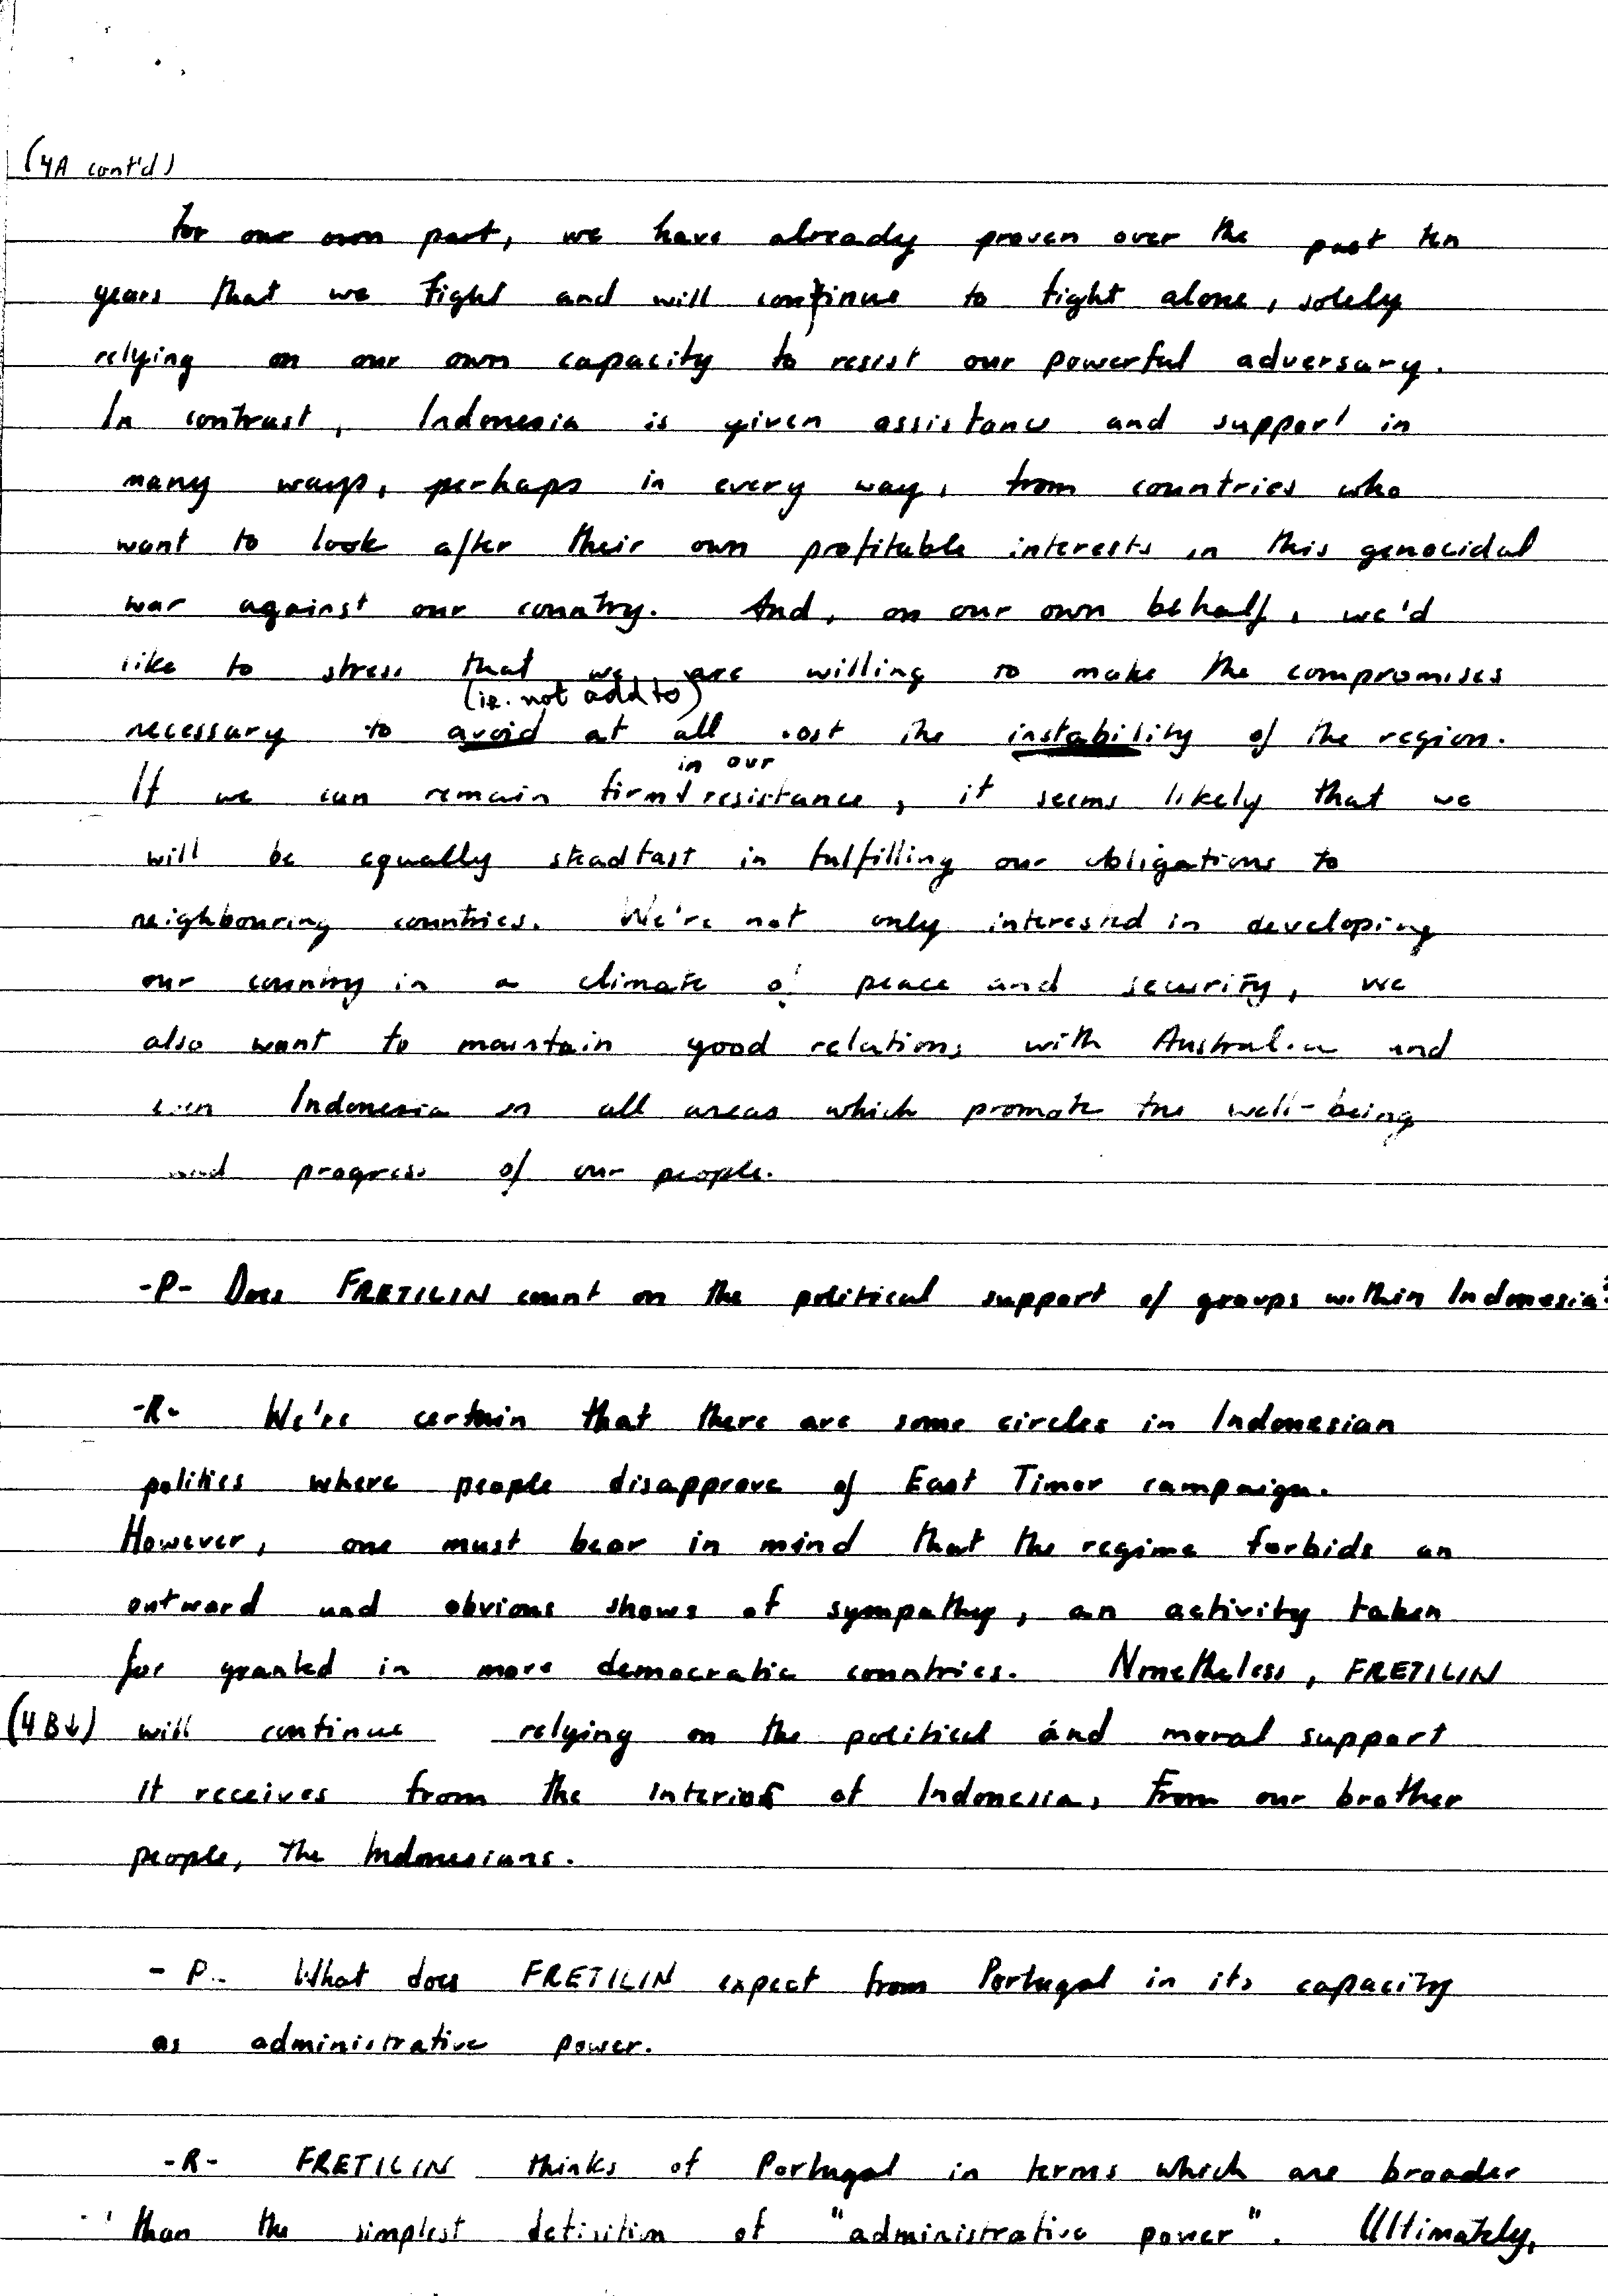 (4A cont'd)
For our own part, we have already proven over the past ten
years that we fight and will continue to fight alone, solely
relying on our own capacity to resist our powerful adversary.
In contrast, Indonesia is given assistance and support in
many ways, perhaps in every way, from countries who
want to look after their own profitable interests in this genocidal
war against our country. And, on our own behalf, we'd
like to stress that we are willing to make the compromises
(ie. not add to)
necessary to avoid at all cost the instability of the region.
in our
If we can remain firm resistance, it seems likely that we
will be equally steadfast in fulfilling our obligations to
neighbouring countries. We're not only interested in developing
our country in a climate of peace and security, we
also want to maintain good relations with Australia and
even Indonesia in all areas which promote the well-being
and progress of our people.
-P- Does FRETILIN count on the political support of groups within Indonesia?
-R- We're certain that there are some circles in Indonesian
politics where people disapprove of East Timor campaign.
However, one must bear in mind that the regime forbids an
outward and obvious shows of sympathy, an activity taken
for granted in more democratic countries. Nonetheless, FRETILIN
(4B↓) will continue relying on the political and moral support
it receives from the interior of Indonesia, from our brother
people, the Indonesians.
- P- What does FRETILIN expect from Portugal in its capacity
as administrative power.
-R- FRETILIN thinks of Portugal in terms which are broader
than the simplest definition of "administrative power". Ultimately,